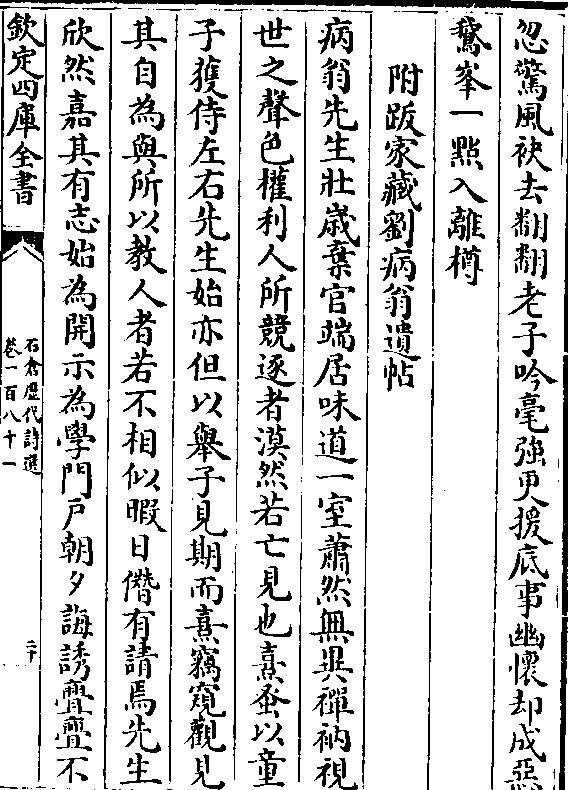 忽驚風袂去翻翻老子吟毫強更援底事幽懷却成惡
鵞峯一點入離樽
附跋家藏劉病翁遺帖
病翁先生壯歳棄官端居味道一室蕭然無異禪衲視
世之聲色權利人所競逐者漠然若亡見也熹蚤以童
子獲侍左右先生始亦但以舉子見期而熹竊窺觀見
其自為與所以教人者若不相似暇日僭有請焉先生
欣然嘉其有志始為開示為學門户朝夕誨誘亹亹不
欽定四庫全書
石倉歴代詩選
卷一百八十一
二十